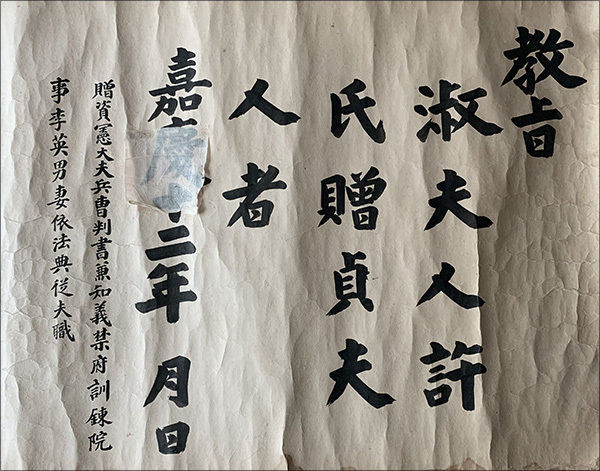 教旨
淑夫人許
氏贈貞夫
人者
嘉慶十二年 月日
贈資憲大夫兵曹判書兼知義禁府訓鍊院
事李英男妻依法典從夫職